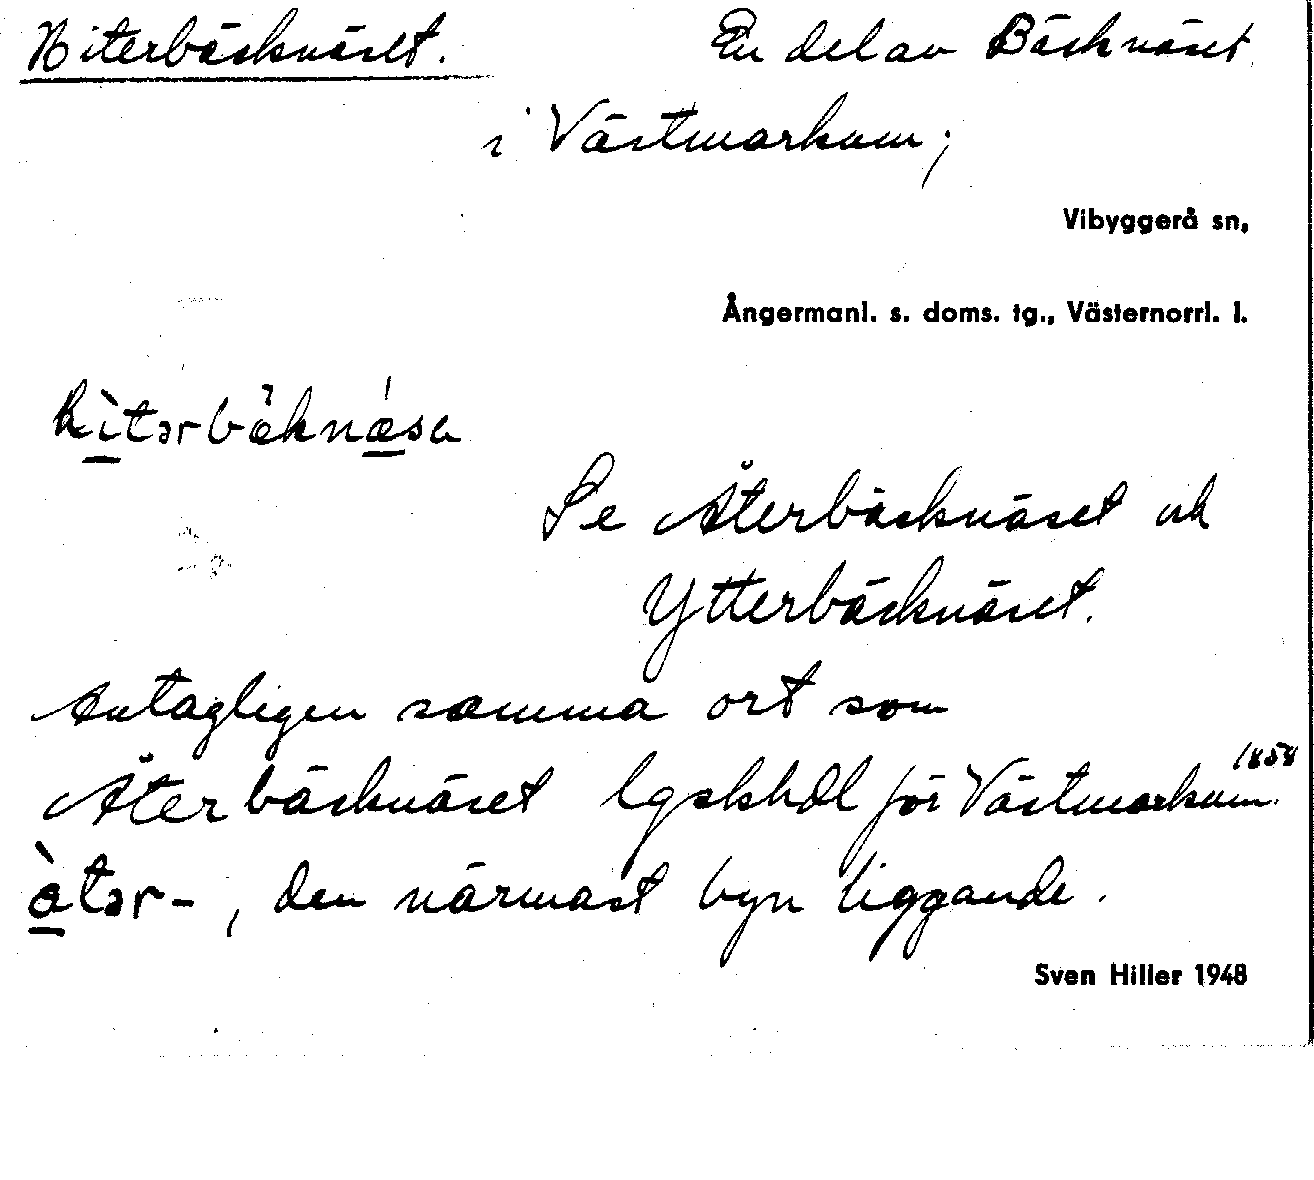 Hiterbäcknäset. En del av Bäcknäset
i Västmarkum;
Vibyggerå sn,
Ångermanl. s. doms. tg., Västernorrl. l.
hìtərbäknǽsa
Se Återbäcknäset och
Ytterbäcknäset.
Antagligen samma ort som
Återbäcknäset lgskhdl för Västmarkum 1858
àtər-, den närmast byn liggande.
Sven Hiller 1948